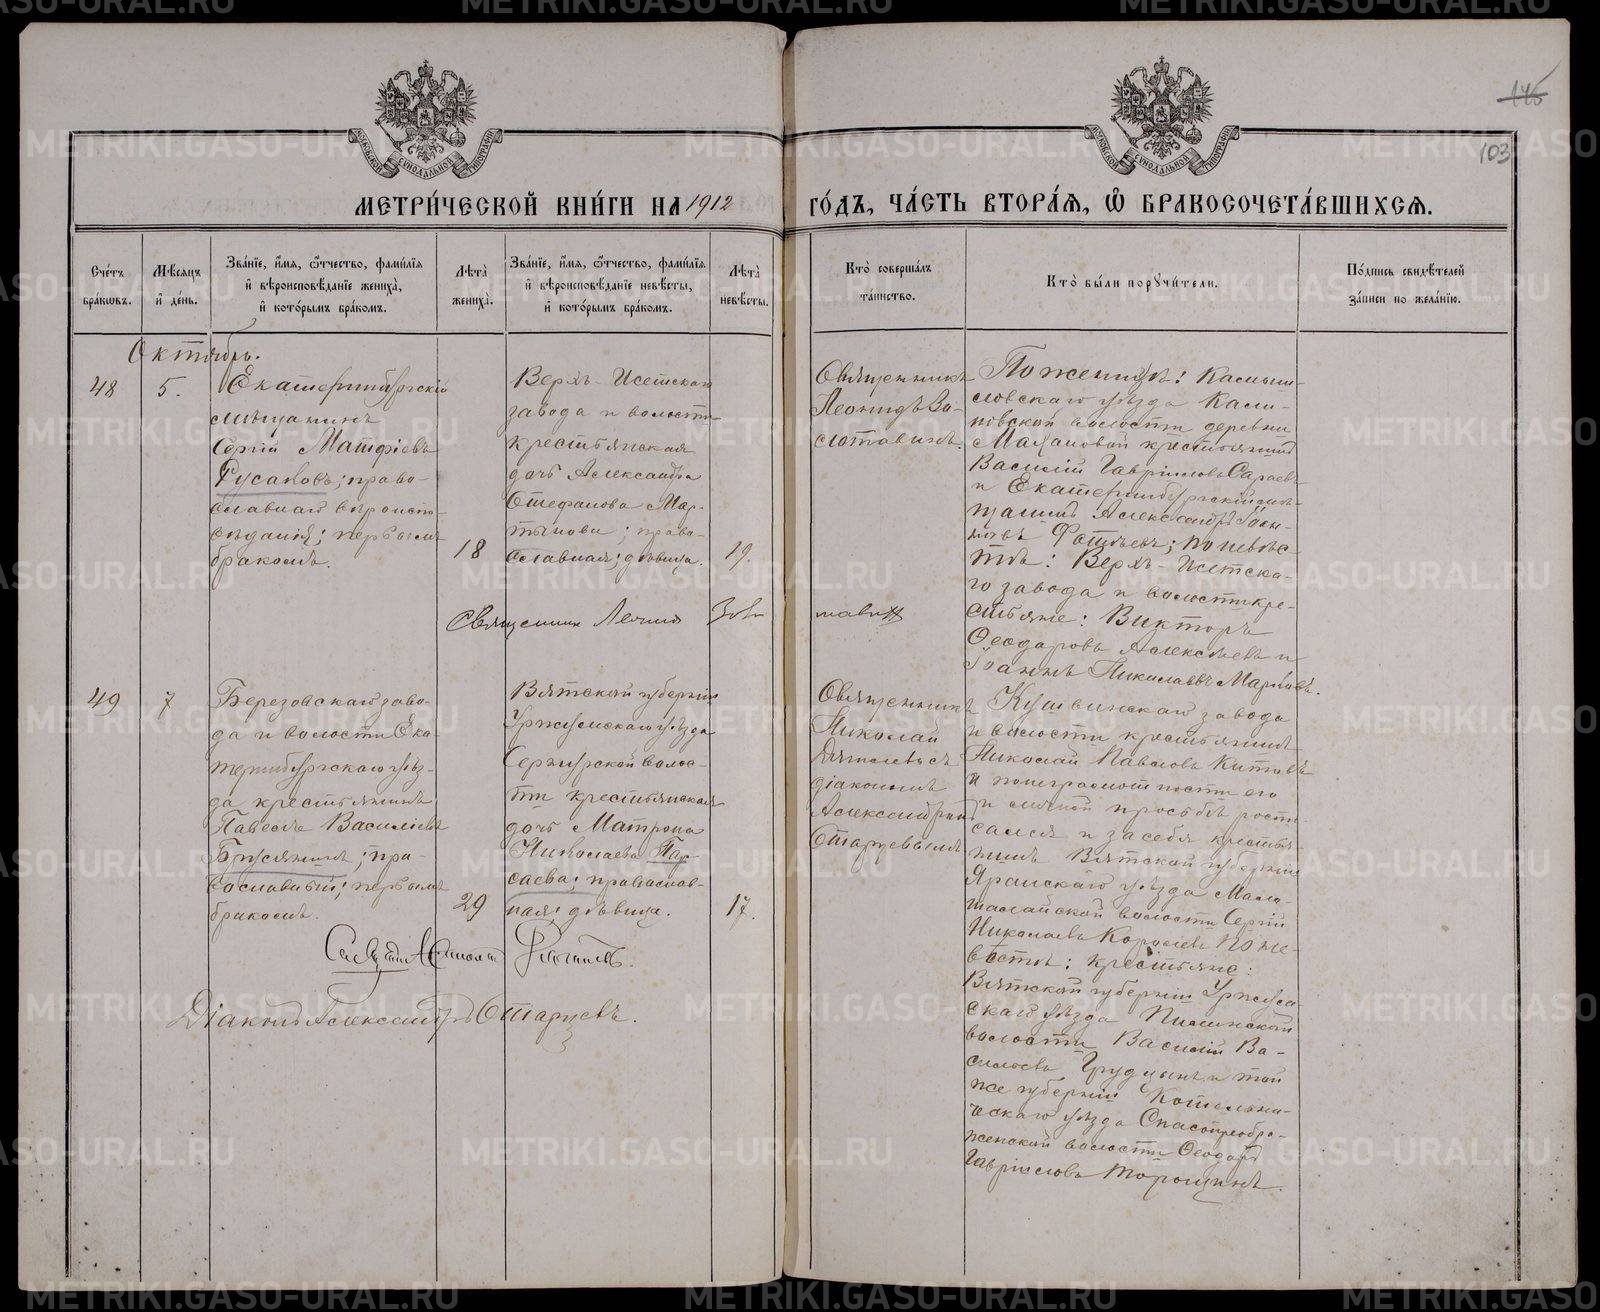 145
103
МОСКОВСКОЙ СѴНОДАЛЬНОЙ ТИПОГРАФІИ
МОСКОВСКОЙ СѴНОДАЛЬНОЙ ТИПОГРАФІИ
МЕТРИ́ЧЕСКОЙ КНИ́ГИ НА 1912 ГО́ДЪ, ЧА́СТЬ ВТОРА́Я, Ѡ БРАКОСОЧЕТА́ВШИХСЯ.
Сче́тъ
бра́ковъ.
Мѣ́сяцъ
и҆ де́нь.
Зва́нїе, и҆́мя, ѻ҆́тчество, фами́лїя
и҆ вѣроисповѣ́данїе жениха̀,
и҆ кото́рымъ бра́комъ.
Лѣта̀
жениха̀.
Зва́нїе, и҆́мя, ѻ҆́тчество, фами́лїя
и҆ вѣроисповѣ́данїе невѣ́сты,
и҆ кото́рымъ бра́комъ.
Лѣта̀
невѣ́сты.
Кто̀ соверша́лъ
та́инство.
Кто̀ бы́ли порꙋчи́тели.
По́дпись свидѣ́телей
за́писи по жела́нїю.
Октябрь.
48
5.
Екатеринбургскій
мѣщанинъ
Сергій Матфіевъ
Русаковъ; право-
славнаго вѣроиспо-
вѣданія; первымъ
бракомъ.
18
Верхъ-Исетскаго
завода и волости
крестьянская
дочь Александра
Стефанова Мар-
тынова; право-
славная; дѣвица.
19.
Священникъ
Леонидъ Зо-
лотавинъ.
По женихѣ: Камыш-
ловскаго уѣзда Кали-
новской волости деревни
Махановой крестьянинъ
Василій Гавріиловъ Сараевъ
и Екатеринбургскій мѣ-
щанинъ Александръ Іоан-
новъ Фотѣевъ; по невѣс-
тѣ: Верхъ-Исетска-
го завода и волости кре-
стьяне: Викторъ
Ѳеодоровъ Алексѣевъ и
Іоаннъ Николаевъ
Священникъ Леонид Золо
тавин
49
7
Березовскаго заво-
да и волости Ека-
теринбургскаго уѣз-
да крестьянинъ
Павелъ Василіевъ
Брусянинъ; пра-
вославный; первымъ
бракомъ.
29
Вятской губерніи
Уржумскаго уѣзда
Сернурской волос-
ти крестьянская
дочь Матрона
Николаева Пар-
саева; православ-
ная; дѣвица.
17.
Священникъ
Николай
съ
діакономъ
Александромъ
Старцевымъ
Кушвинскаго завода
и волости крестьянинъ
Николай Павловъ Китовъ
и по неграмотности его
и личной просьбѣ роспи-
сался и за себя кресть-
янинъ Вятской губерніи
Яранскаго уѣзда
волости Сергій
Николаевъ Королевъ по не-
вѣстѣ: крестьяне:
Вятской губерніи Уржум-
скаго уѣзда Пилинской
волости Василій Ва-
сильевъ Грудцынъ и той
же губерніи Котельни-
ческаго уѣзда Спасопреобра-
женской волости Ѳеодоръ
Гавріиловъ Торощинъ.
Діаконъ Александръ Старцевъ.